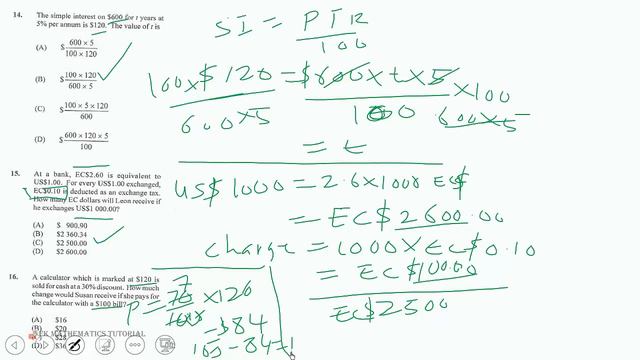 14. The simple interest on $600 for t years at
5% per annum is $120. The value of t is
(A) $ 600 × 5 / 100 × 120
(B) $ 100 × 120 / 600 × 5
(C) $ 100 × 5 × 120 / 600
(D) $ 600 × 120 × 5 / 100
15. At a bank, EC$2.60 is equivalent to
US$1.00. For every US$1.00 exchanged,
EC$0.10 is deducted as an exchange tax.
How many EC dollars will Leon receive if
he exchanges US$1 000.00?
(A) $ 900.90
(B) $ 2 360.34
(C) $ 2 500.00
(D) $ 2 600.00
16. A calculator which is marked at $120 is
sold for cash at a 30% discount. How much
change would Susan receive if she pays for
the calculator with a $100 bill?
(A) $16
$28
(D) $36
MATHEMATICS TUTORIAL
SI = PTR / 100
100 × $120 / 600 × 5 = $600 × t × 5 / 100 × 100 / 600 × 5
= t
US$ 1000 = 2.6 × 1000 EC$
= EC$ 2600.00
charge = 1000 × EC$ 0.10
= EC$ 100.00
EC$ 2500
P = 70 / 100 × 120
7
= $84
100 - 84 = 1